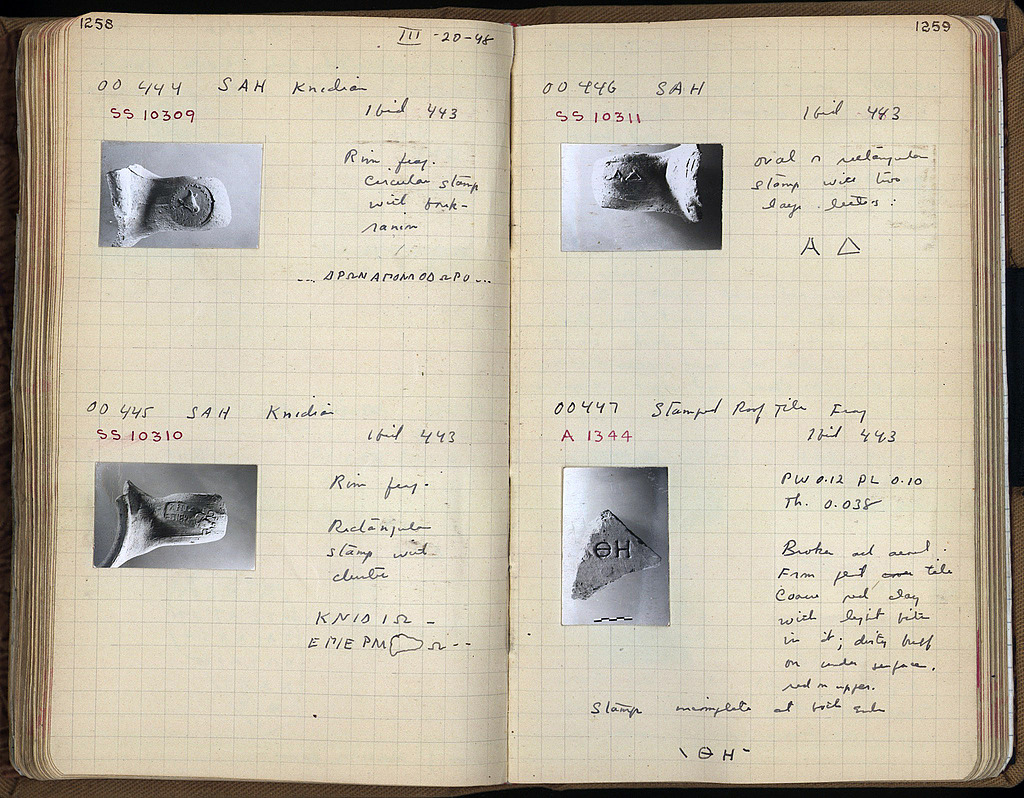 1258
III -20-48
OO 444 SAH Knidian
SS 10309
Ibid 443
Rim frag.
Circular stamp
with buk-
ranion
... ΔΡΩΝΑΠΟΛΛΟΔΩΡΟ ...
OO 445 SAH Knidian
SS 10310
Ibid 443
Rim frag.
Rectangular
stamp with
KNIDIΩ -
EPIEPM Ω --
1259
OO 446 SAH
SS 10311
Ibid 443
oval or rectangular
stamp with two
large letters:
Α Δ
OO 447 Stamped Roof Tile Frag
A 1344
Ibid 443
ΘΗ
PW 0.12 PL 0.10
Th. 0.038
Broken all around.
From cover tile
Coarse red clay
with light bits
in it; dusty buff
on under surface,
red on upper.
Stamp incomplete at both ends
\ Θ Η -